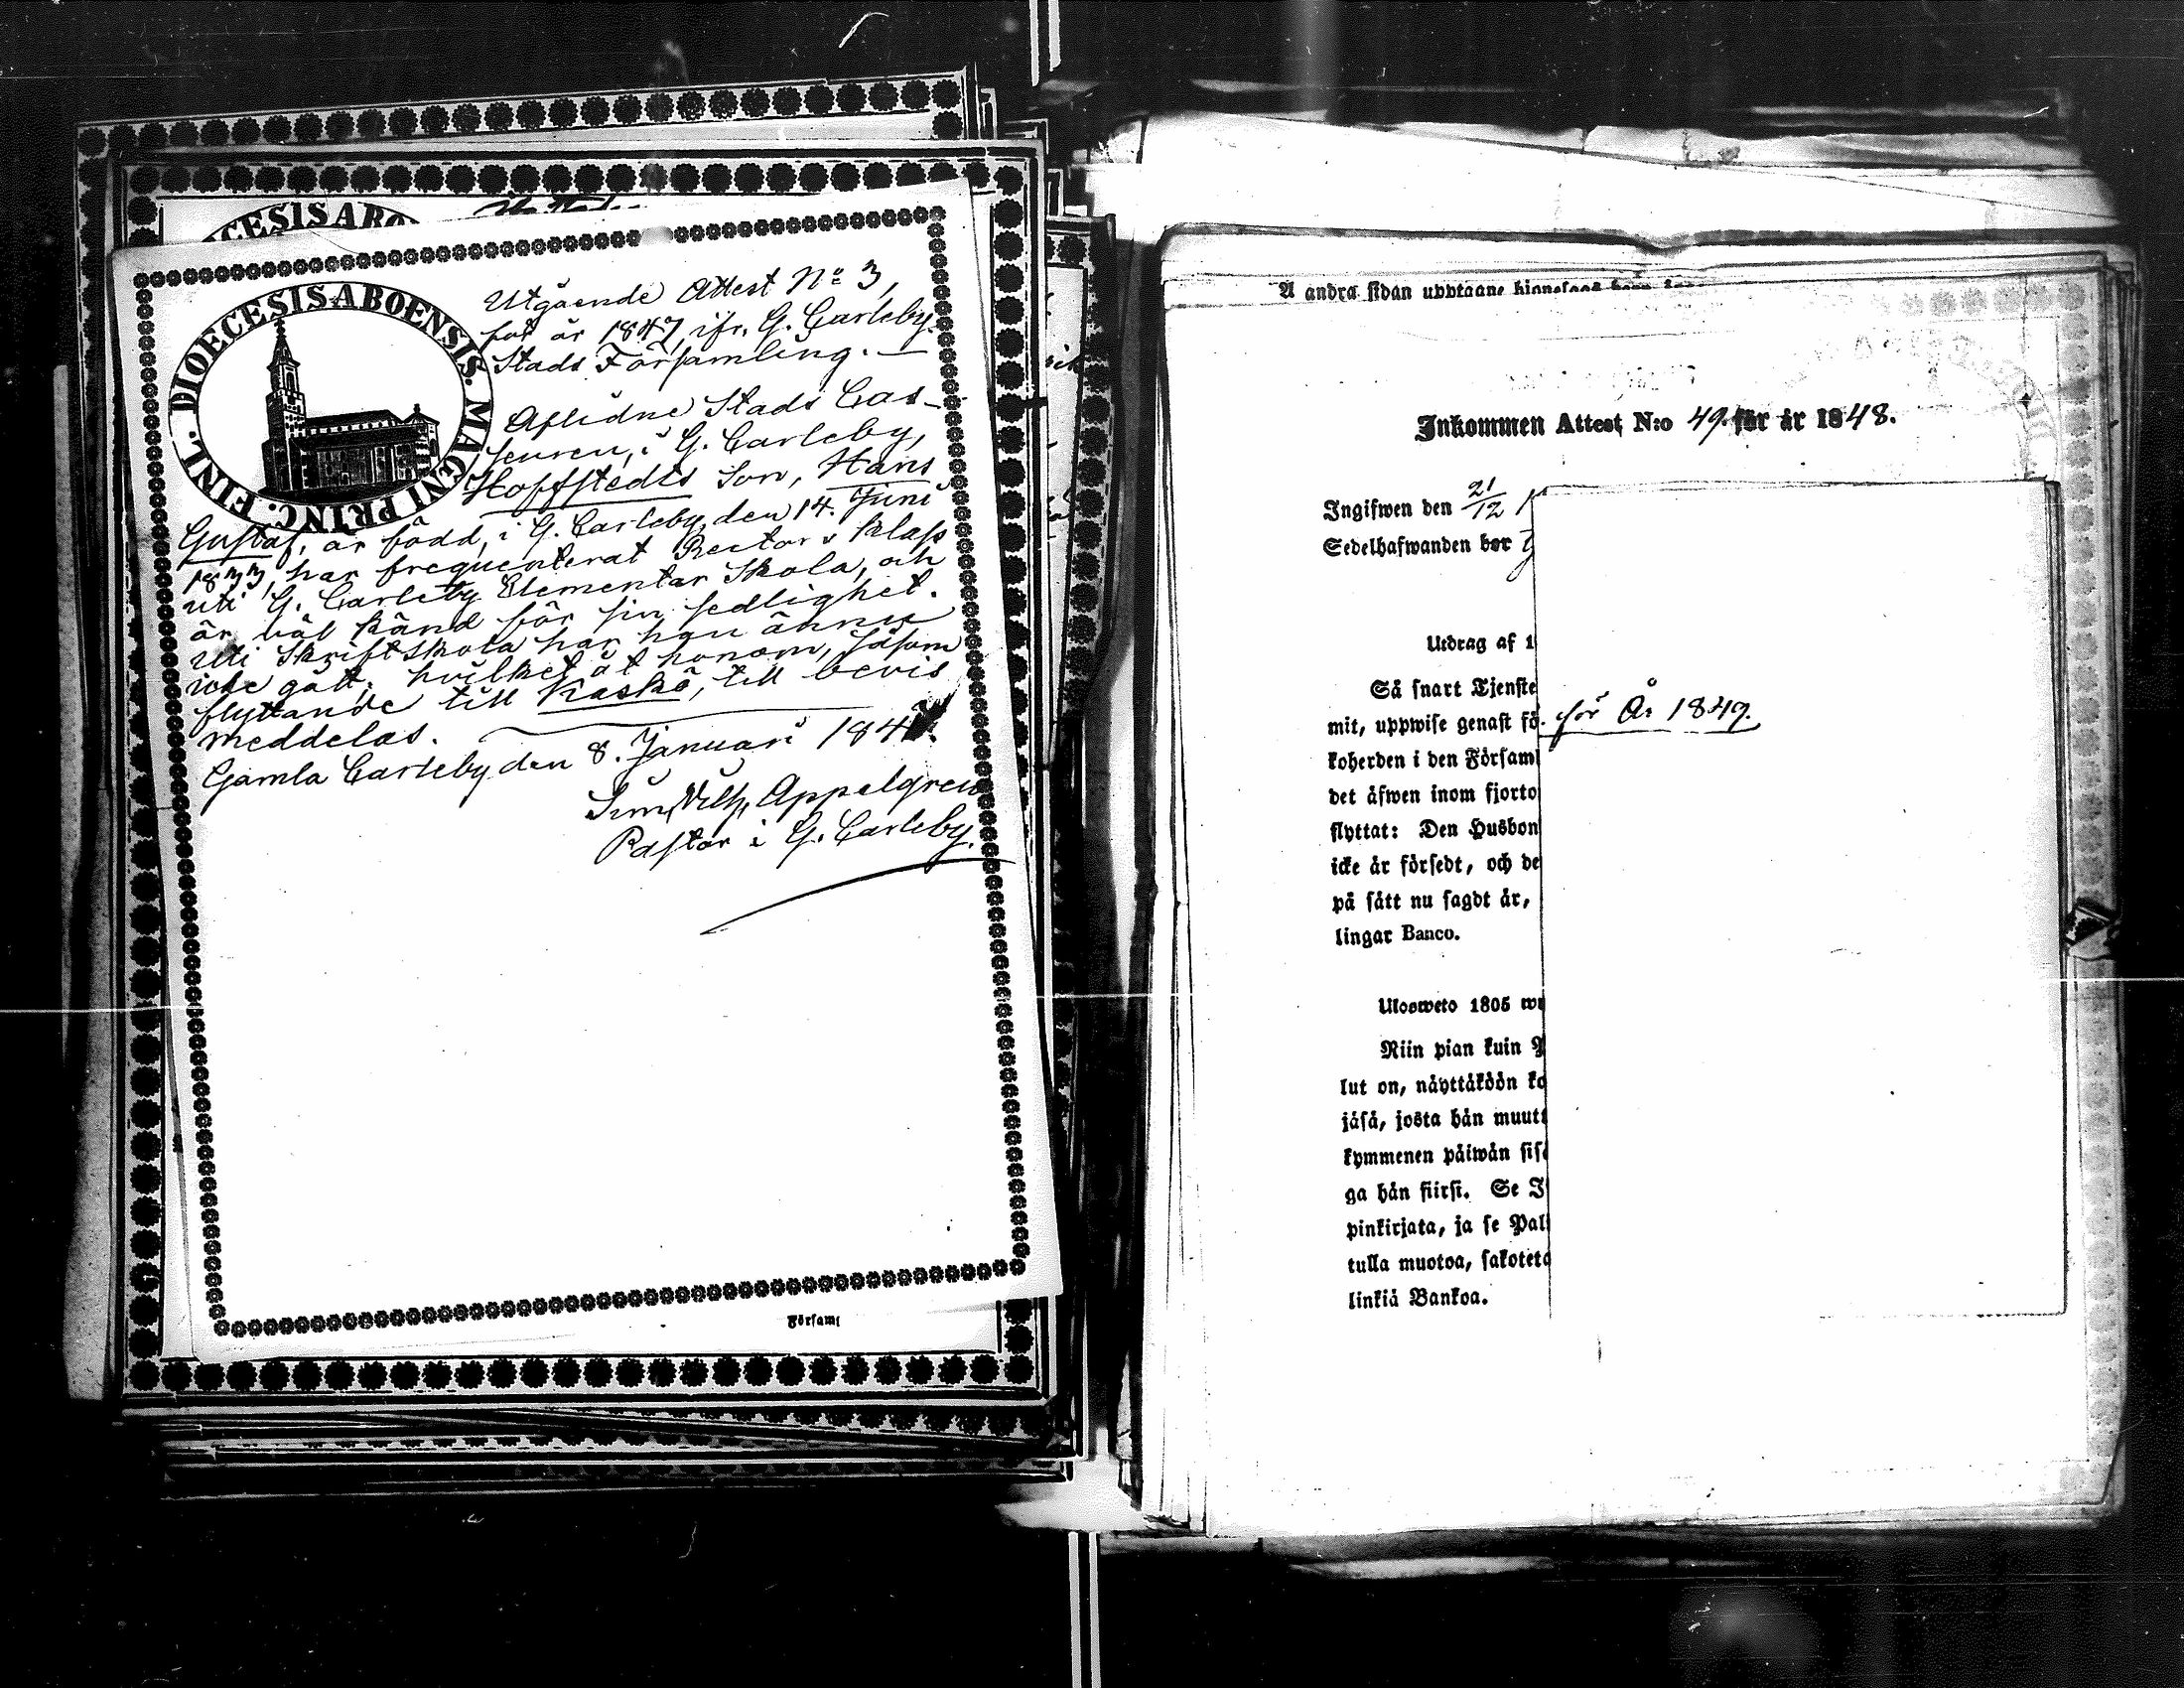 DIOECESIS ABOENSIS. MAGNI PRINC. FINL.
Utgående Attest No 3,
för år 1847, ifr. G. Carleby
Stads Församling. —
Aflidne Stads Cas-
seuren, i G. Carleby,
Hoffstedts Son, Hans
Gustaf, är född, i G. Carleby, den 14. Juni
1833, har frequenterat Rectors Klass
uti G. Carleby Elementar Skola, och
är väl känd för sin sedlighet.
Uti Skriftskola har han ännu
icke gått; hvilket åt honom, såsom
flyttande till Kaskö, till bevis
meddelas.
Gamla Carleby den 8. Januari 184
Appelgren
Pastor i G. Carleby.
Församl
Å andra sidan upptagne
Inkommen Attest N:o 49. för år 1848.
Ingifwen den 21/12
Sedelhafwanden bor
Utdrag af 1
Så snart Tjenste
mit, uppwise genast fö
för År 1849.
koherden i den Församl
det äfwen inom fjorto
flyttat: Den Husbon
icke är försedt, och de
på sätt nu sagdt är,
lingar Banco.
Ulosweto 1805 wu
Niin pian kuin P
lut on, näyttäköön ko
jäsä, josta hän muutt
kymmenen päiwän sisä
ga hän siirsi. Se I
pinkirjata, ja se Pal
tulla muotoa, sakoteta
linkiä Bankoa.